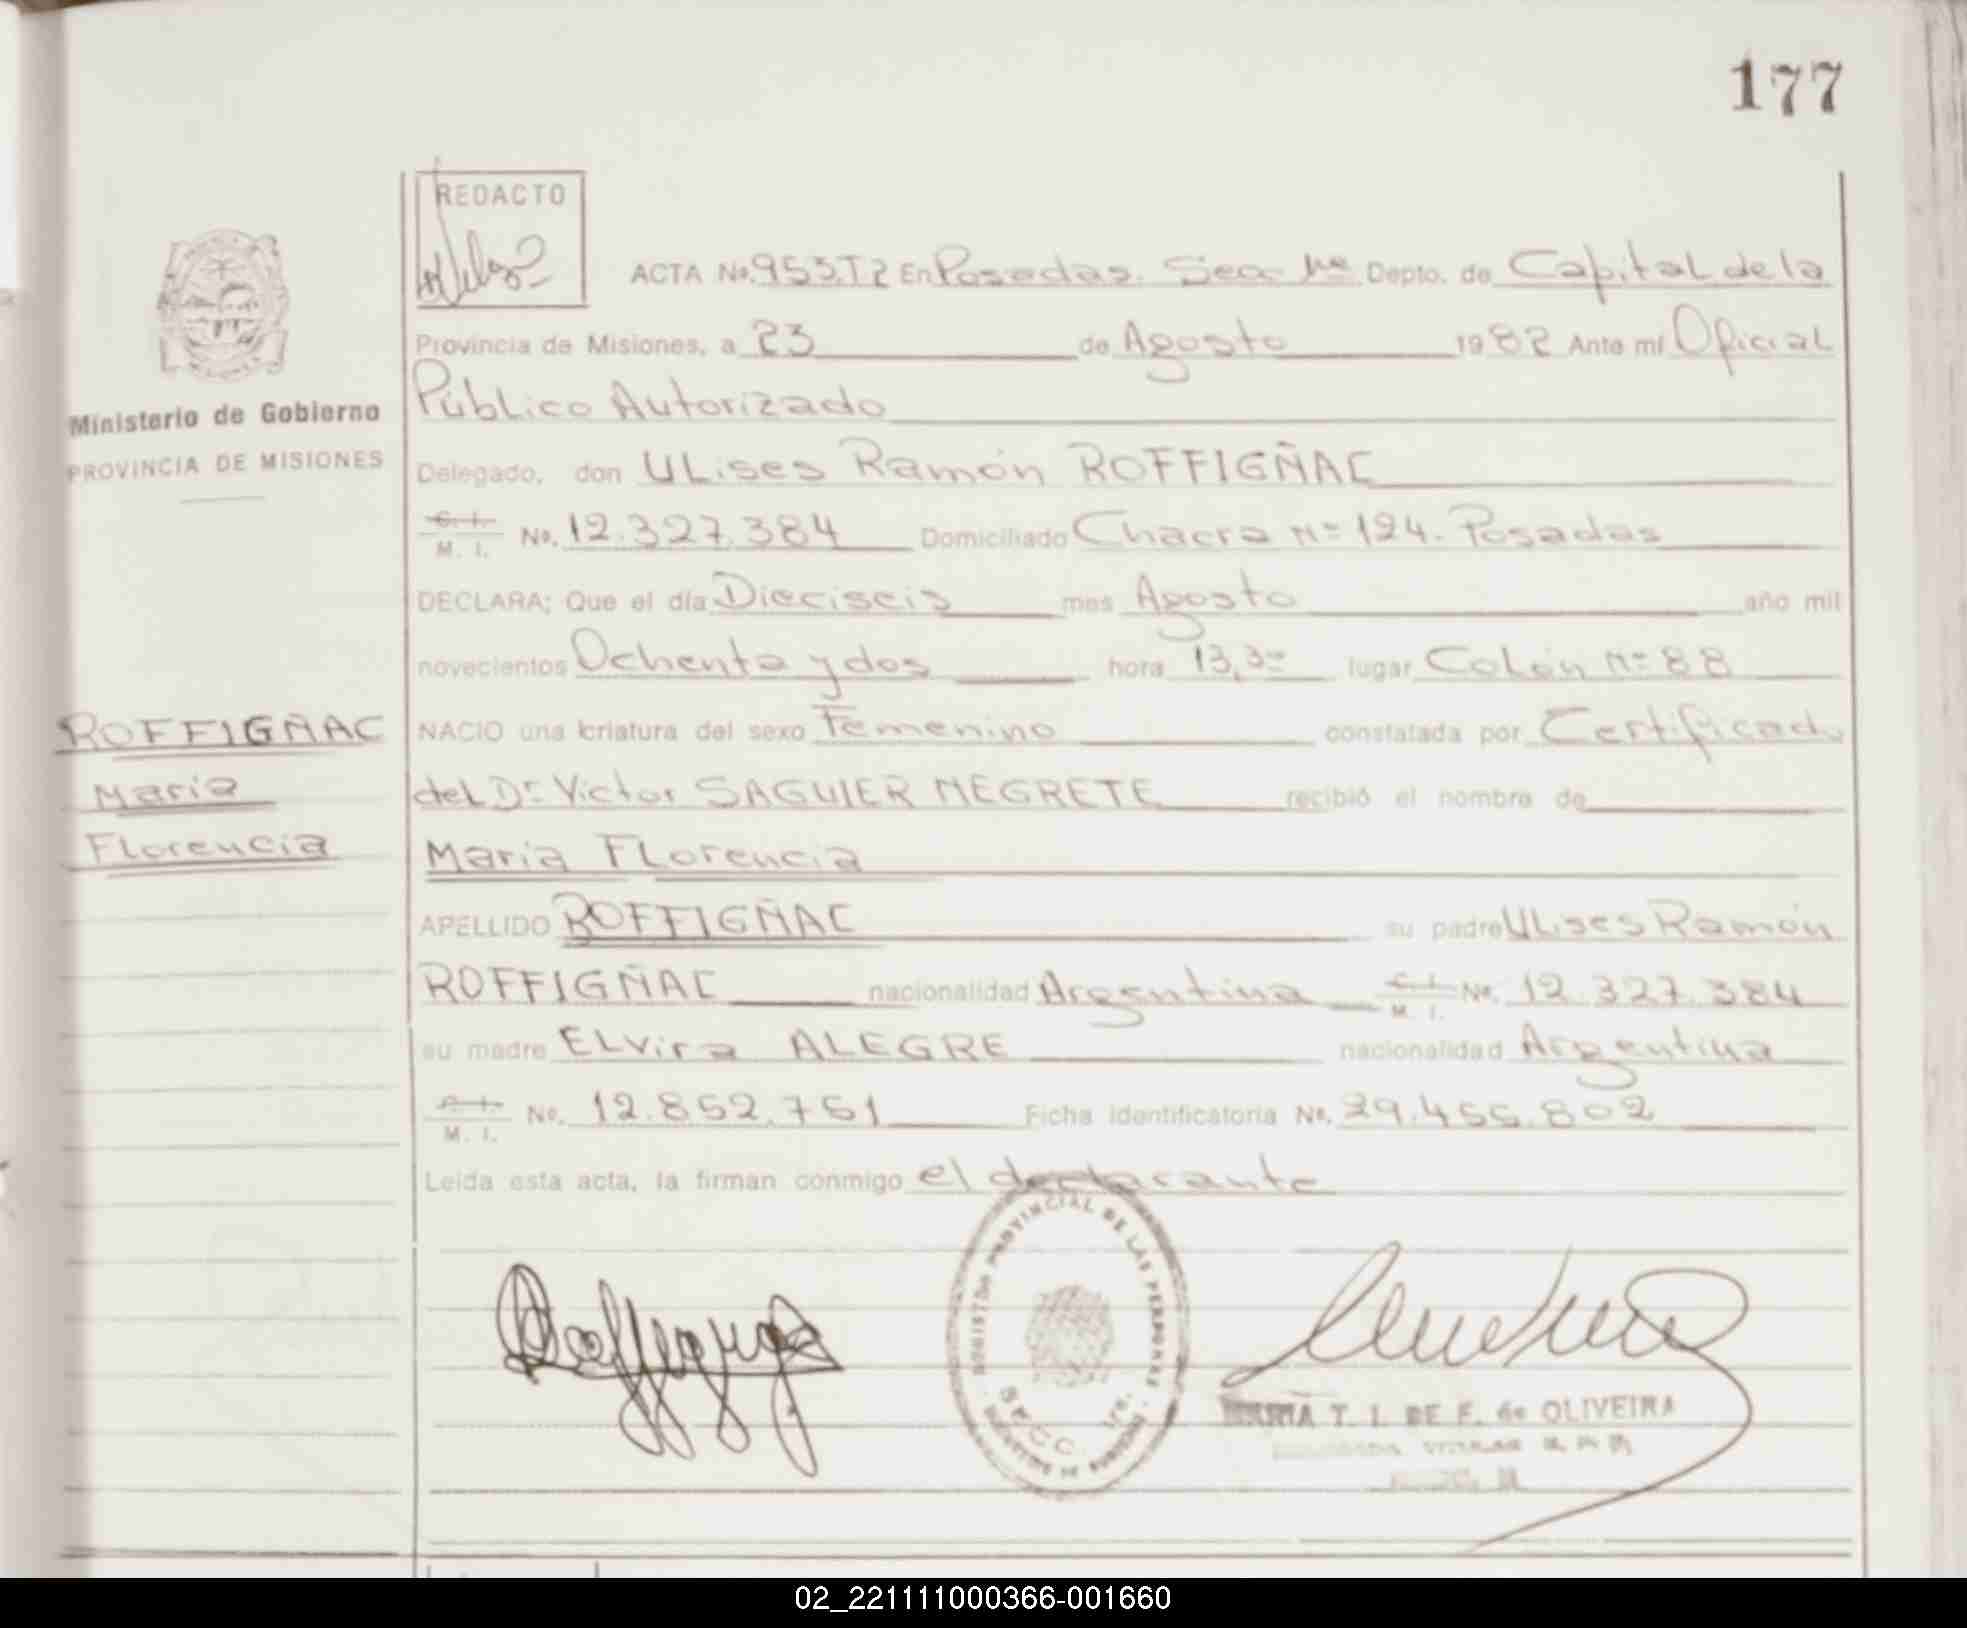 177
REDACTO
ACTA No. 953.T2 En Posadas. Secc 1ra Depto. de Capital de la
Provincia de Misiones, a 23 de Agosto 1982 Ante mí Oficial
Público Autorizado
Ministerio de Gobierno
PROVINCIA DE MISIONES
Delegado, don ULises Ramón ROFFIGÑAC
C. I.
M. I. No. 12.327.384 Domiciliado Chacra Nº 124. Posadas
DECLARA; Que el día Dieciseis mes Agosto año mil
novecientos Ochenta y dos hora 13,30 lugar Colón Nº 88
NACIO una criatura del sexo Femenino constatada por Certificado
del Dr Victor SAGUIER NEGRETE recibió el nombre de
María Florencia
ROFFIGÑAC
María
Florencia
APELLIDO ROFFIGÑAC su padre ULises Ramón
ROFFIGÑAC nacionalidad Argentina C. I. M. I. No. 12.327.384
su madre ELvira ALEGRE nacionalidad Argentina
C. I.
M. I. No. 12.852.761 Ficha identificatoria No. 29.455.802
Leída esta acta, la firman conmigo el declarante
REGISTRO PROVINCIAL DE LAS PERSONAS
SECC. 1ra.
MARIA T. I. DE F. de OLIVEIRA
02_221111000366-001660